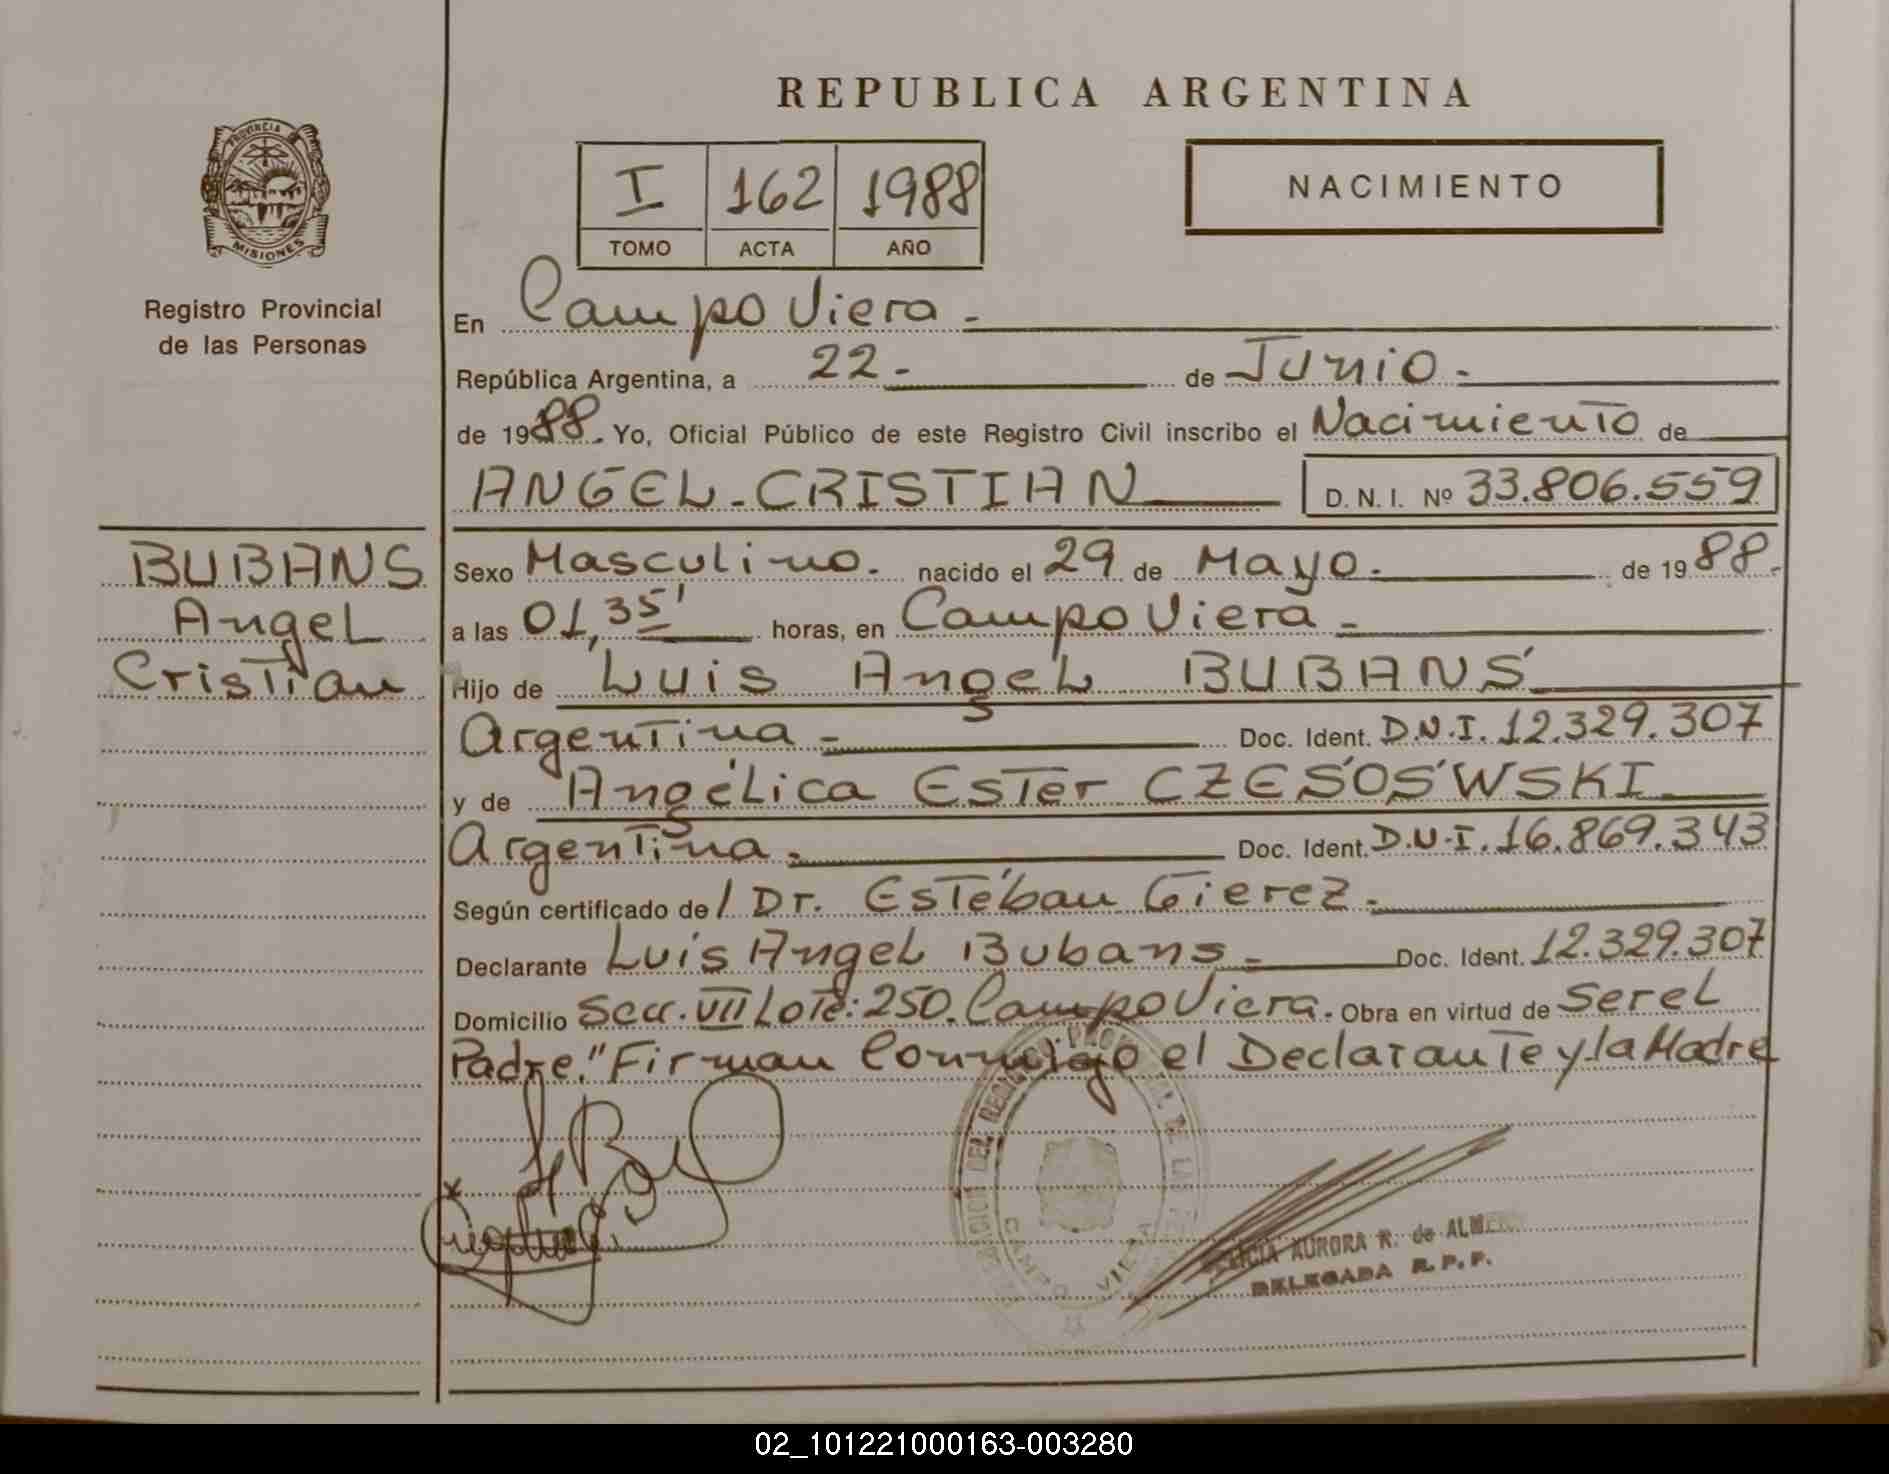 REPUBLICA ARGENTINA
PROVINCIA
MISIONES
Registro Provincial
de las Personas
I 162 1988
TOMO ACTA AÑO
NACIMIENTO
En Campo Viera.
República Argentina, a 22. de Junio.
de 1988. Yo, Oficial Público de este Registro Civil inscribo el Nacimiento de
ANGEL-CRISTIAN D. N. I. Nº 33.806.559
BUBANS
Angel
Cristian
Sexo Masculino. nacido el 29 de Mayo. de 1988.
a las 01,35' horas, en Campo Viera.
Hijo de Luis Angel BUBANS
Argentina Doc. Ident. D.N.I. 12.329.307
y de Angélica Ester CZESOSWSKI
Argentina. Doc. Ident. D.N.I. 16.869.343
Según certificado de/ Dr. Estéban Gierez.
Declarante Luis Angel Bubans Doc. Ident. 12.329.307
Domicilio Secc. VII Lote: 250. Campo Viera. Obra en virtud de Ser el
Padre." Firman Conmigo el Declarante y la Madre
DEL REGISTRO PROVINCIAL DE LAS
CAMPO VIERA
AURORA R. de
DELEGADA R.P.P.
02_101221000163-003280